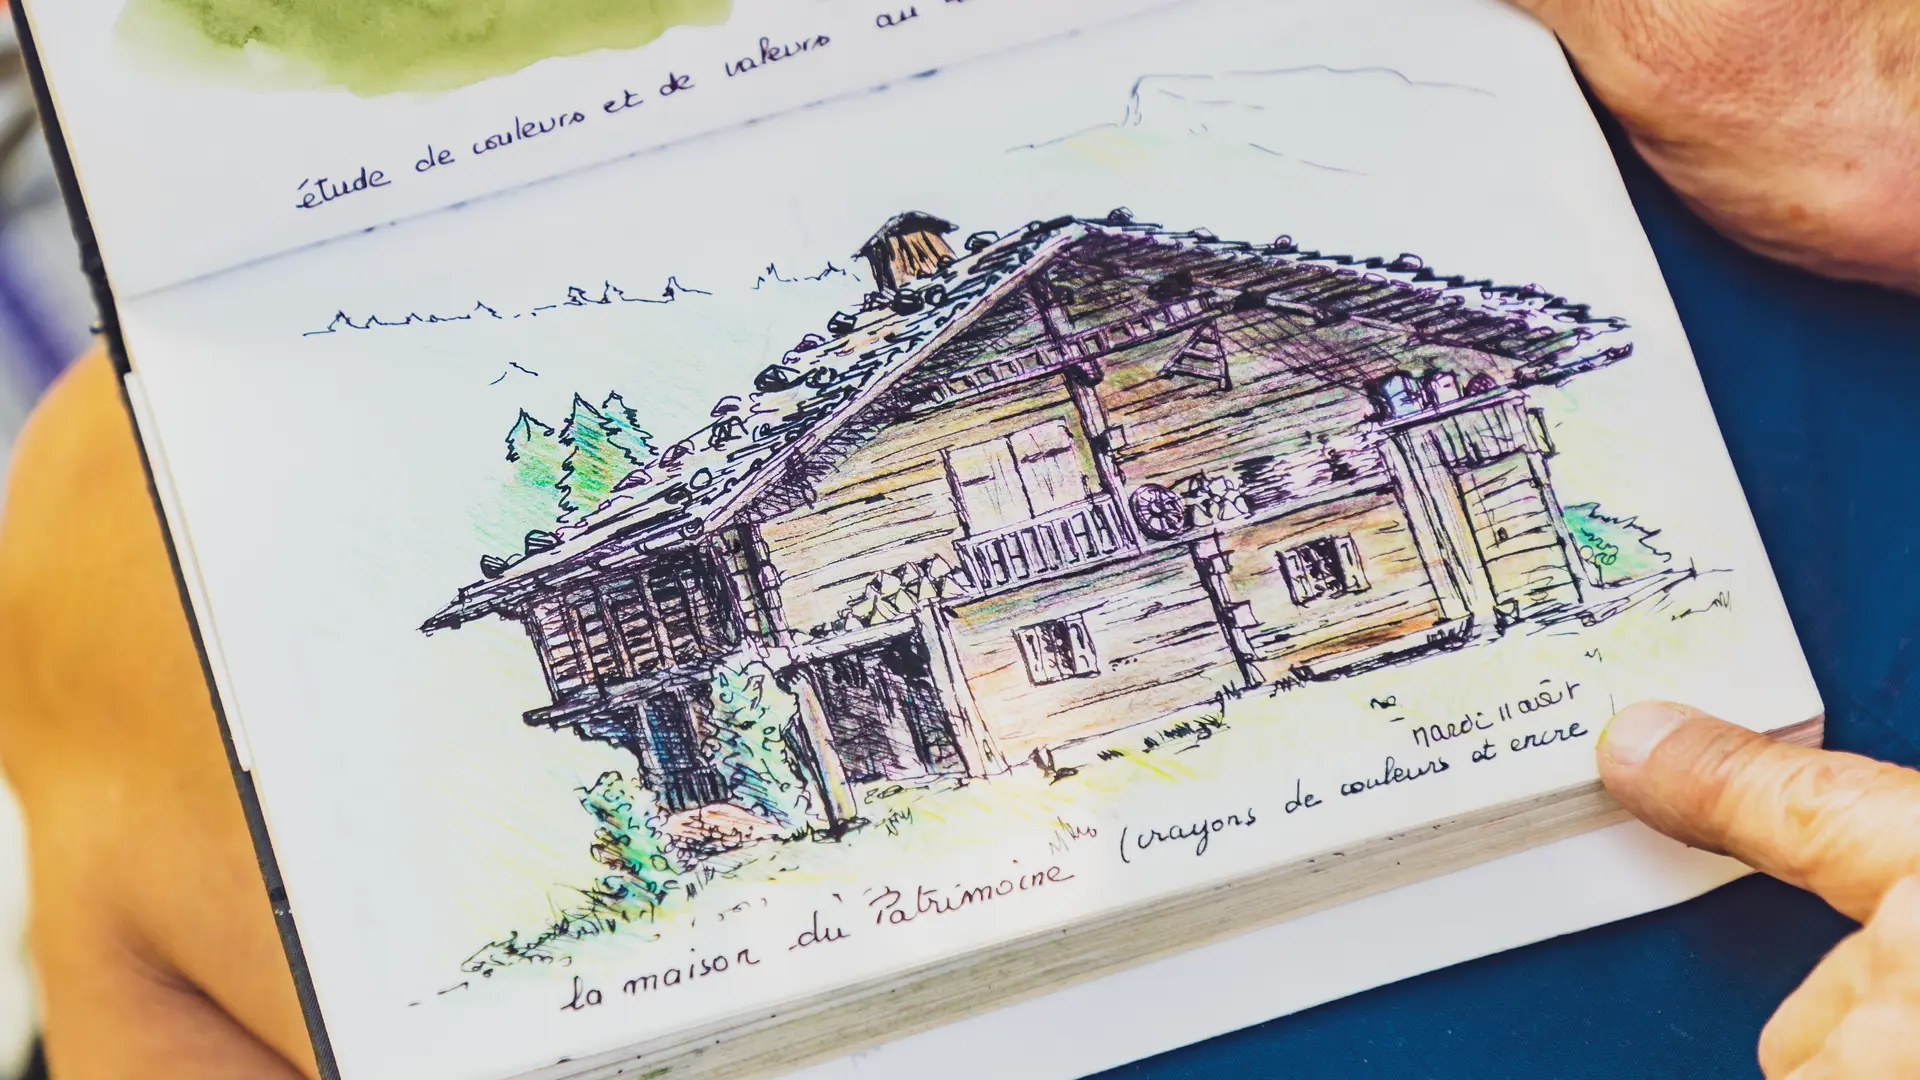 étude de couleurs et de valeurs au
mardi 11 août
la maison du Patrimoine (crayons de couleurs et encre